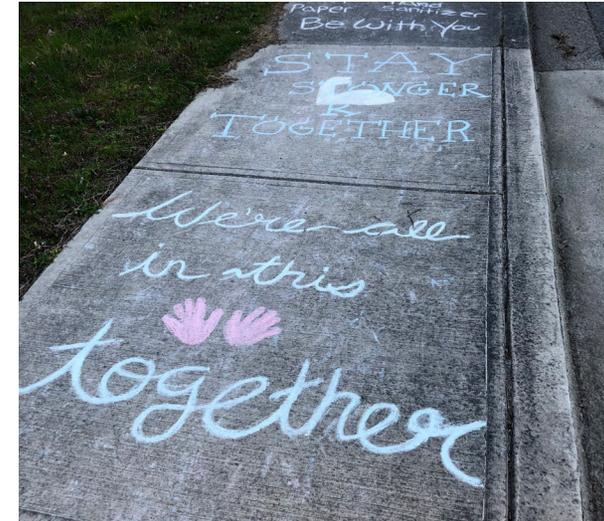 Paper Sanitizer
Be With You
STAY
STONGER
R
TOGETHER
We're all
in this
together